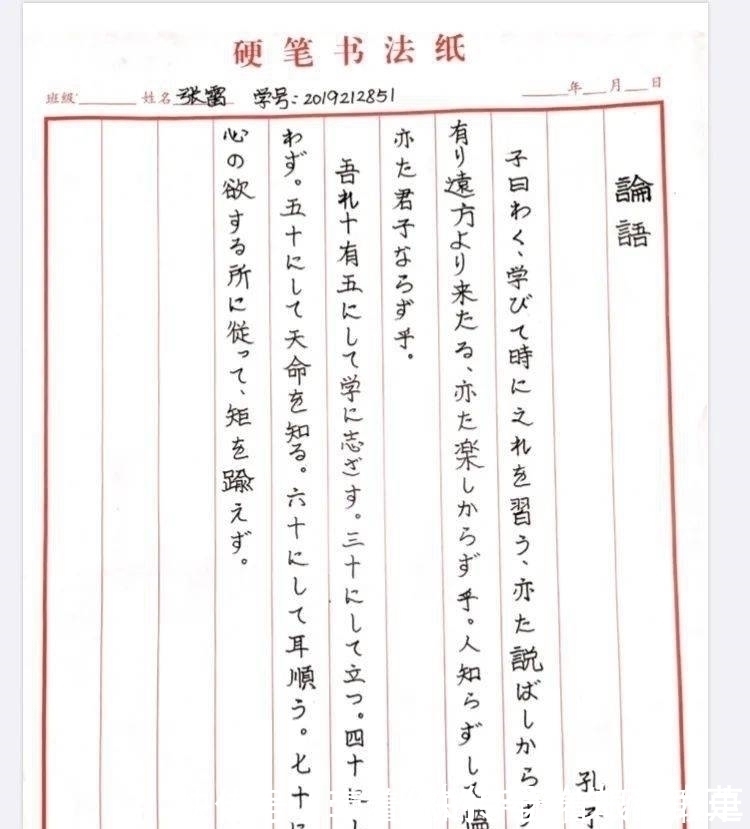 硬笔书法纸
班级 姓名 张雷 学号：2019212851 年 月 日
論語
孔子
子曰わく、学びて時にえれを習う、亦た説ばしから
有り遠方より来たる、亦た楽しからず乎。人知らずして
亦た君子ならず乎。
吾れ十有五にして学に志ざす。三十にして立つ。四十にし
わず。五十にして天命を知る。六十にして耳順う。七十に
心の欲する所に従って、矩を踰えず。